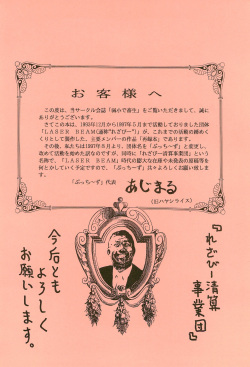 お客様へ
この度は、当サークル会誌「　　で蓄生」をご覧いただきまして、誠に
ありがとうございます。
さてこの本は、1993年12月から1997年5月まで活動しておりました団体
「LASER BEAM(通称"れざびー")」が、これまでの活動の締めく
くりとして製作した、主要メンバーの作品「再録本」であります。
そして、私たちは1997年6月より、団体名を「ぶっちーず」と変更し、
改めて活動を始めた訳なのですが、同時に「れざびー清算事業団」という
名称で、「LASER BEAM」時代の膨大な在庫や未発品の原稿等を
何とかしていく予定ですので、「ぶっちーず」共々よろしくお願い致しま
す。
「ぶっちーず」代表 あじまる
(旧ハヤシライス)
『れざびー清算
事業団』
今后とも
よろしく
お願いします。